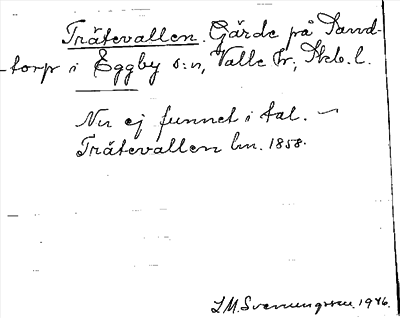 Trätevallen. Gärde på Sand-
torp i Eggby s:n, Valle hr, Skb. l.
Nu ej funnet i tal. —
Trätevallen lm. 1858.
I.M. Svennungsson. 1946.